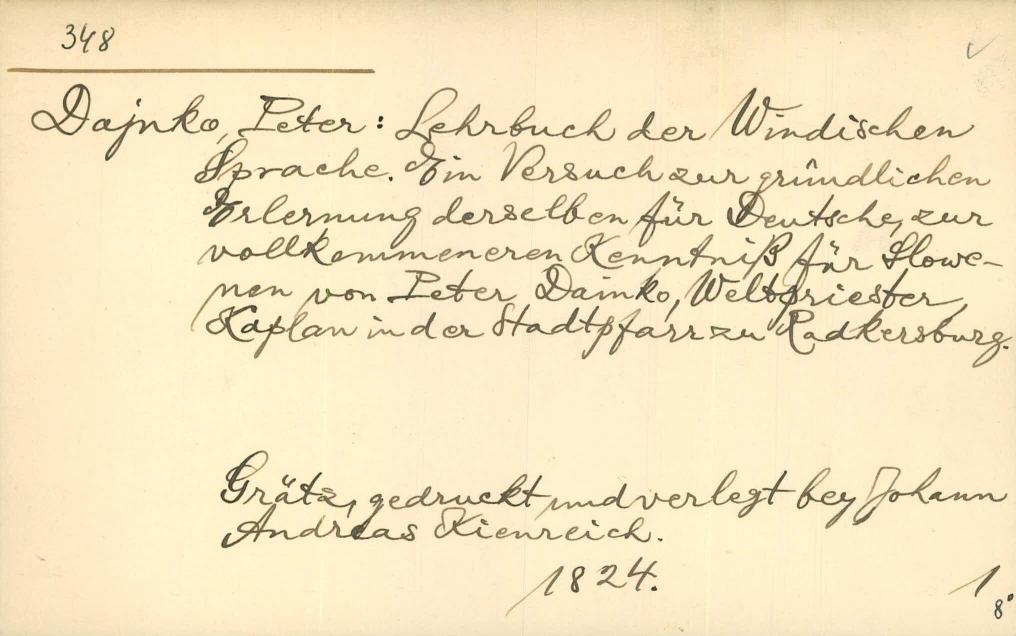 348
Dajnko, Peter: Lehrbuch der Windischen
Sprache. Ein Versuch zur gründlichen
Erlernung derselben für Deutsche, zur
vollkommeneren Kenntniß für Slowe-
nen von Peter Dainko, Weltpriester,
Kaplan in der Stadtpfarr zu Radkersburg.
Grätz, gedruckt und verlegt bey Johann
Andreas Kienreich.
1824.
1
8°